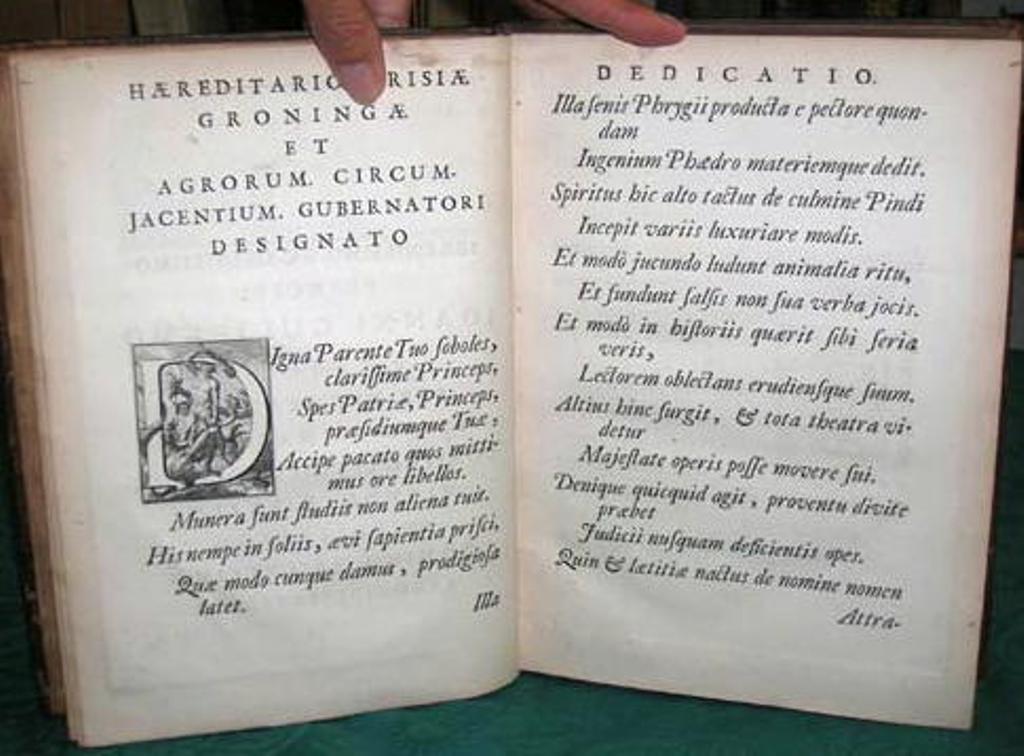 HÆREDITARIO FRISIÆ
GRONINGÆ
ET
AGRORUM. CIRCUM-
JACENTIUM. GUBERNATORI
DESIGNATO
DIgna Parente Tuo ſoboles,
clariſſime Princeps,
Spes Patriæ, Princeps,
præſidiumque Tuæ,
Accipe pacato quos mitti-
mus ore libellos.
Munera ſunt ſtudiis non aliena tuis.
His nempe in foliis, ævi ſapientia priſci,
Quæ modo cunque damus, prodigioſa
latet.
Illa
DEDICATIO.
Illa ſenis Phrygii producta e pectore quon-
dam
Ingenium Phædro materiemque dedit.
Spiritus hic alto tactus de culmine Pindi
Incepit variis luxuriare modis.
Et modò jucundo ludunt animalia ritu,
Et fundunt ſalſis non ſua verba jocis.
Et modò in hiſtoriis quærit ſibi ſeria
veris,
Lectorem oblectans erudienſque ſuum.
Altius hinc ſurgit, & tota theatra vi-
detur
Majeſtate operis poſſe movere ſui.
Denique quicquid agit, proventu divite
præbet
Judicii nuſquam deficientis opes.
Quin & lætitiæ nactus de nomine nomen
Attra-